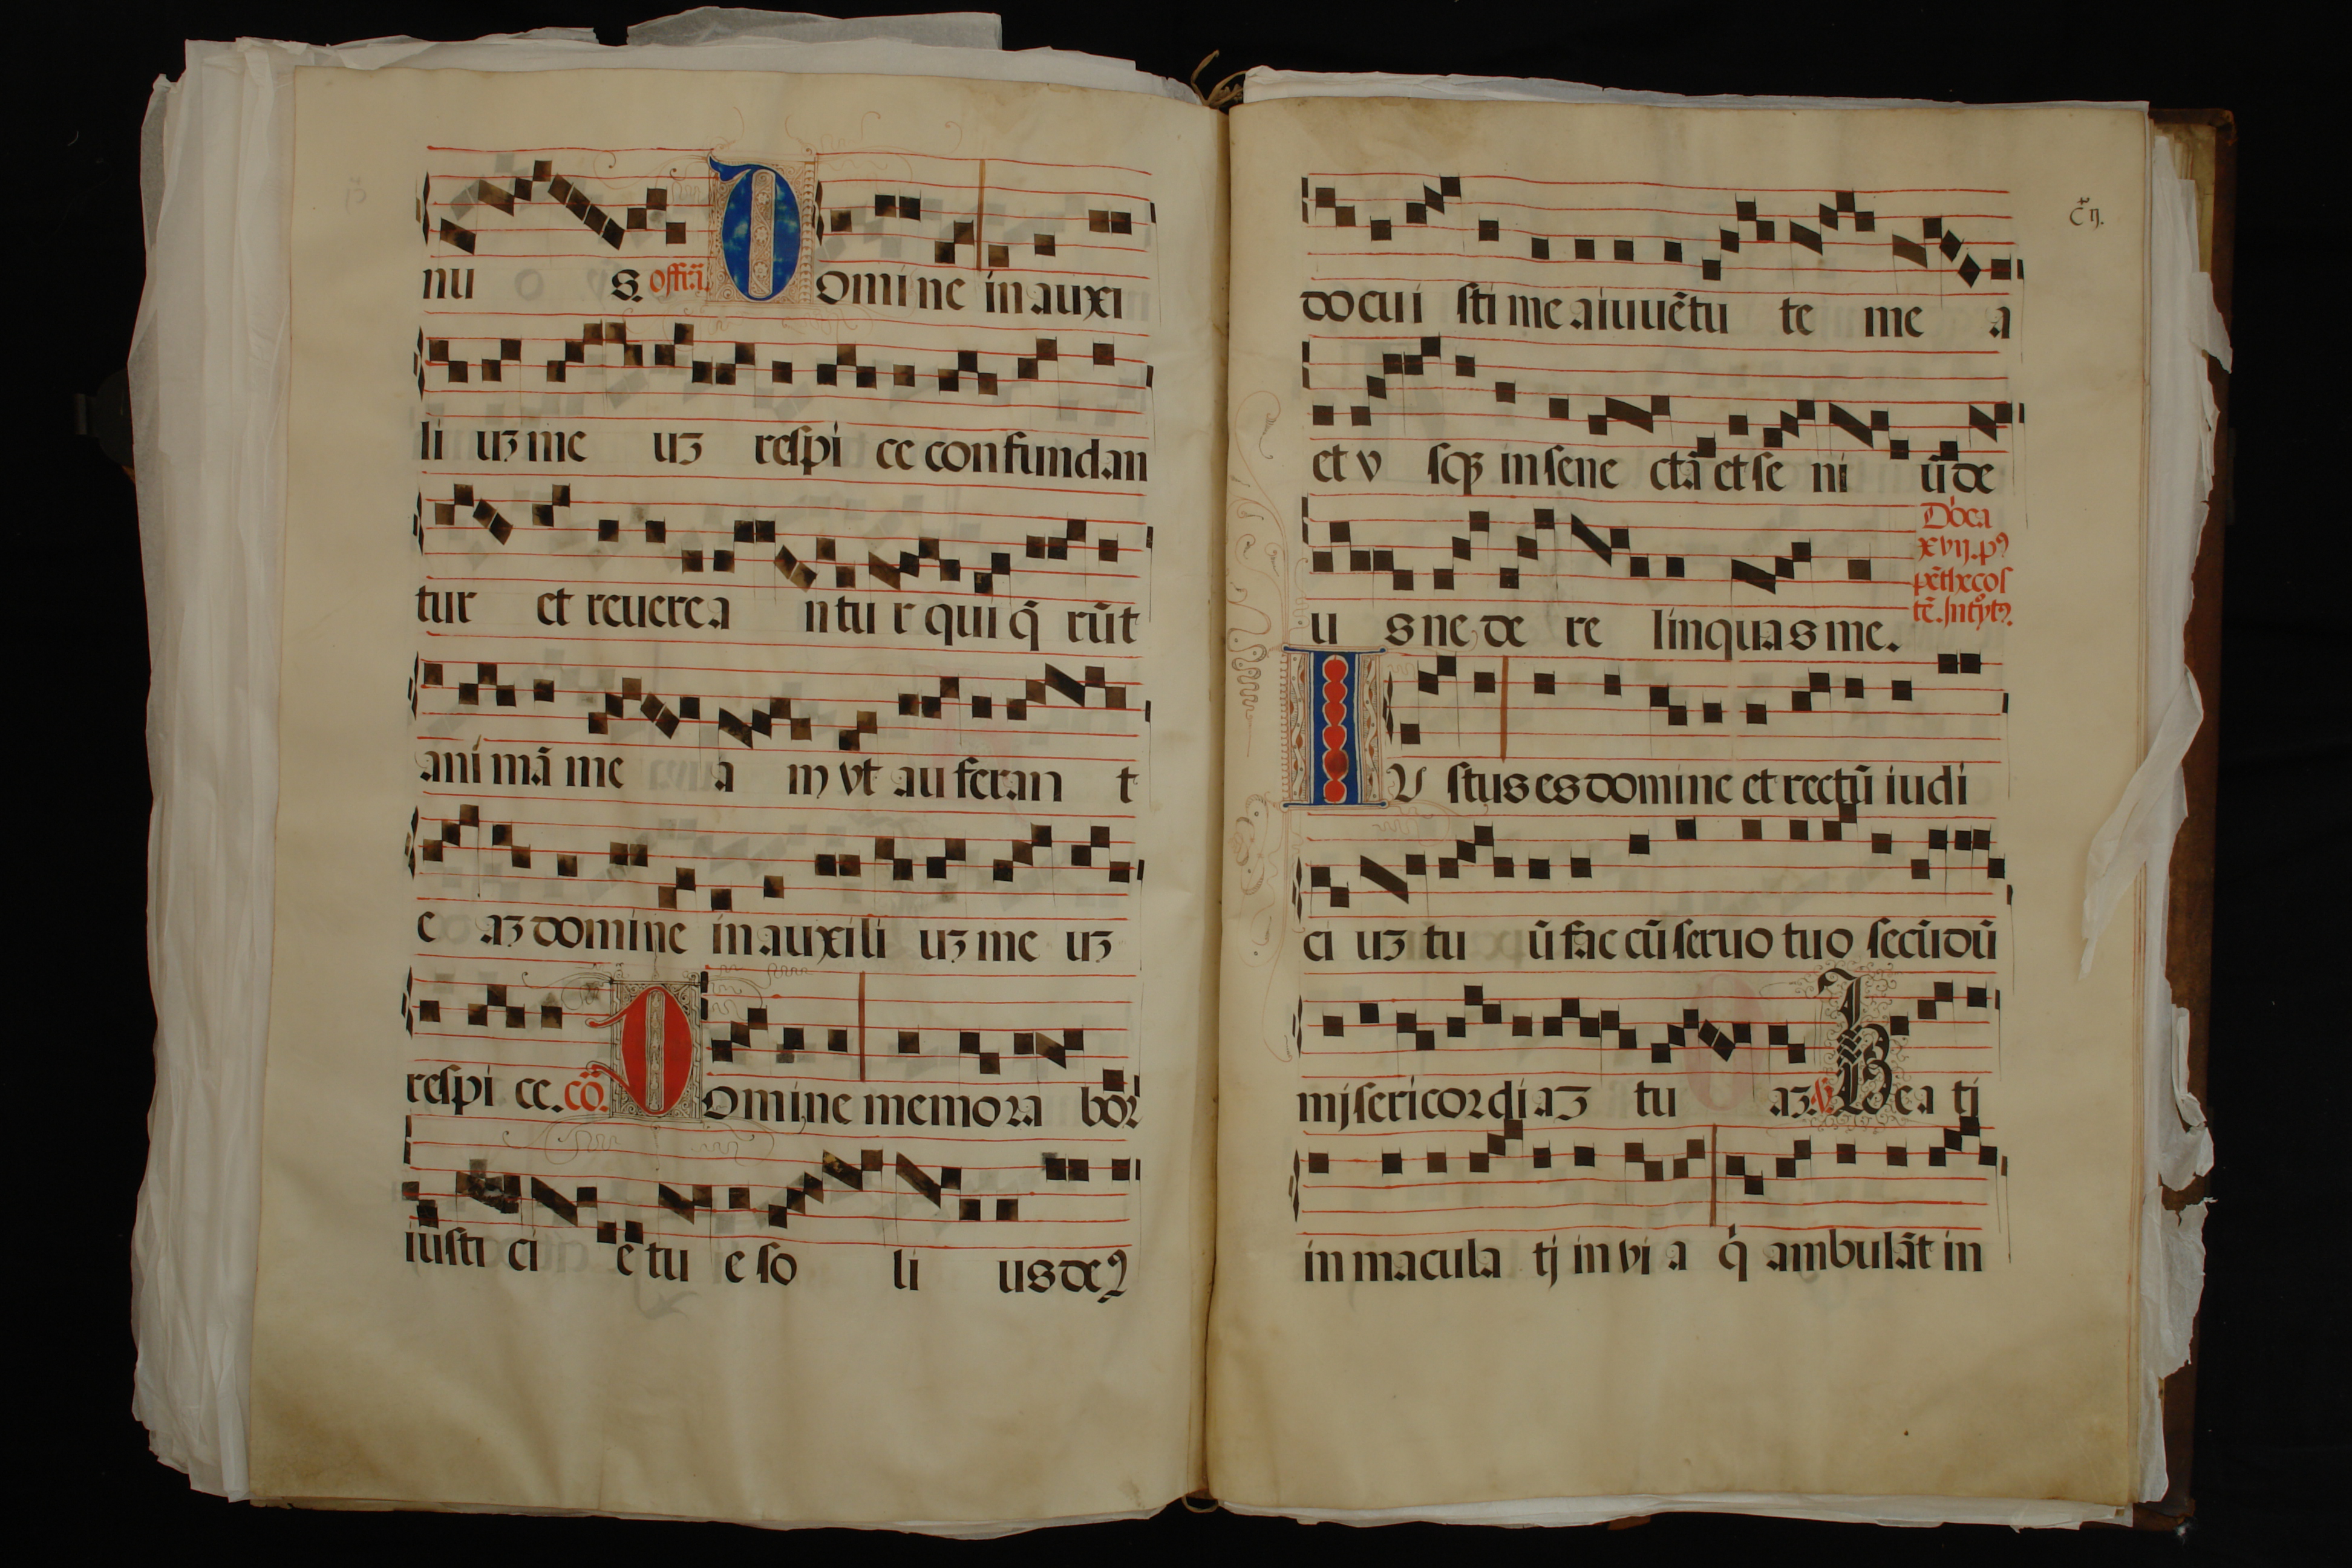 nu s. offr̄i. Domine in auxi
li uʒ me uʒ reſpi ce confundan
tur et reuerea ntu r qui q̄ rūt
ani mā me a m vt auferan t
e aʒ domine in auxili uʒ me uʒ
reſpi ce. cō. Domine memora bor
iuſti ci e tu e so li us deꝰ
docui ſti me a iuuētu te me a
et v ſqꝫ in ſene ctā et se ni ū de
u s ne de re linquas me.
Dōca
xvij. pꝰ
pēthecoſ
tē. Introytꝰ.
IU ſtus es domine et rectū iudi
ci uʒ tu ū fac cū ſeruo tuo ſecūdū
mjſericordi aʒ tu aʒ. Bea tj
in macula tj in vi a q̇ ambulāt in